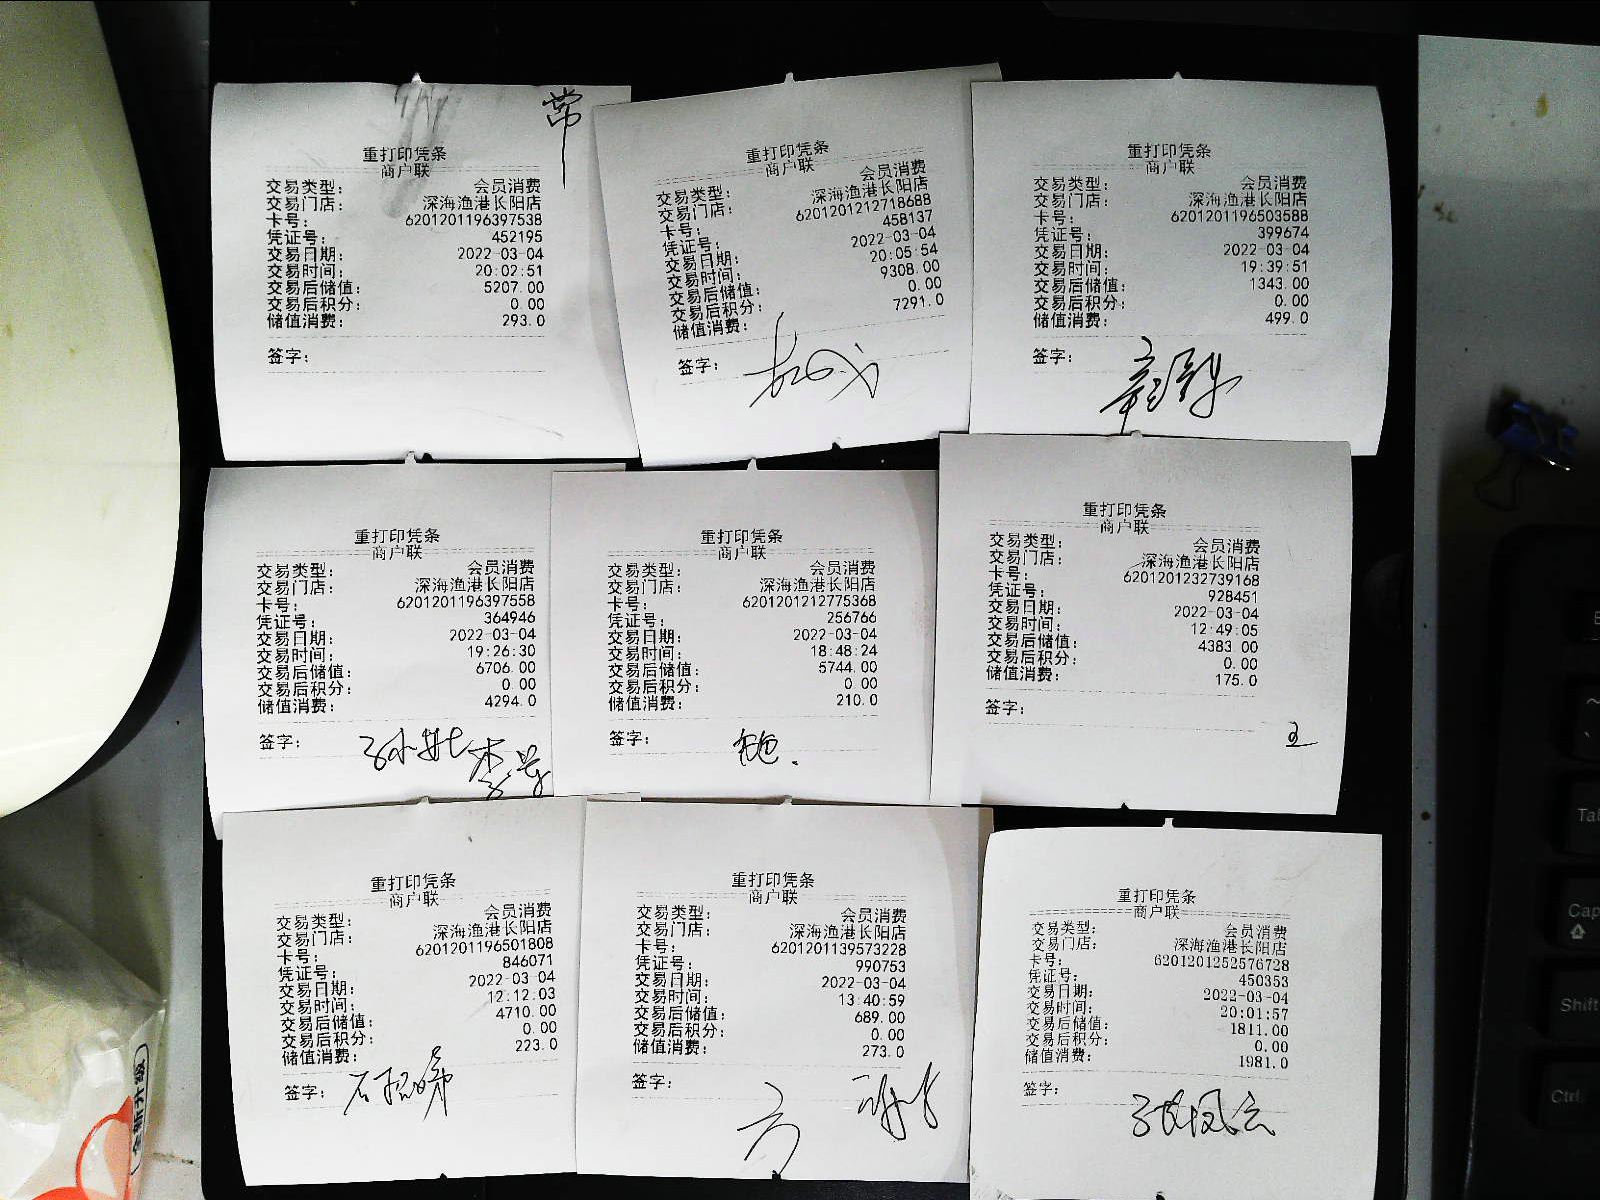 常
重打印凭条
商户联
交易类型: 会员消费
交易门店: 深海渔港长阳店
卡号: 6201201196397538
凭证号: 452195
交易日期: 2022-03-04
交易时间: 20:02:51
交易后储值: 5207.00
交易后积分: 0.00
储值消费: 293.0
签字:
重打印凭条
商户联
交易类型: 会员消费
交易门店: 深海渔港长阳店
卡号: 6201201212718688
凭证号: 458137
交易日期: 2022-03-04
交易时间: 20:05:54
交易后储值: 9308.00
交易后积分: 0.00
储值消费: 7291.0
签字:
重打印凭条
商户联
交易类型: 会员消费
交易门店: 深海渔港长阳店
卡号: 6201201196503588
凭证号: 399674
交易日期: 2022-03-04
交易时间: 19:39:51
交易后储值: 1343.00
交易后积分: 0.00
储值消费: 499.0
签字:
重打印凭条
商户联
交易类型: 会员消费
交易门店: 深海渔港长阳店
卡号: 6201201196397558
凭证号: 364946
交易日期: 2022-03-04
交易时间: 19:26:30
交易后储值: 6706.00
交易后积分: 0.00
储值消费: 4294.0
签字:
重打印凭条
商户联
交易类型: 会员消费
交易门店: 深海渔港长阳店
卡号: 6201201212775368
凭证号: 256766
交易日期: 2022-03-04
交易时间: 18:48:24
交易后储值: 5744.00
交易后积分: 0.00
储值消费: 210.0
签字:
重打印凭条
商户联
交易类型: 会员消费
交易门店: 深海渔港长阳店
卡号: 6201201232739168
凭证号: 928451
交易日期: 2022-03-04
交易时间: 12:49:05
交易后储值: 4383.00
交易后积分: 0.00
储值消费: 175.0
签字:
王
重打印凭条
商户联
交易类型: 会员消费
交易门店: 深海渔港长阳店
卡号: 6201201196501808
凭证号: 846071
交易日期: 2022-03-04
交易时间: 12:12:03
交易后储值: 4710.00
交易后积分: 0.00
储值消费: 223.0
签字:
重打印凭条
商户联
交易类型: 会员消费
交易门店: 深海渔港长阳店
卡号: 6201201139573228
凭证号: 990753
交易日期: 2022-03-04
交易时间: 13:40:59
交易后储值: 689.00
交易后积分: 0.00
储值消费: 273.0
签字:
方
重打印凭条
商户联
交易类型: 会员消费
交易门店: 深海渔港长阳店
卡号: 6201201252576728
凭证号: 450353
交易日期: 2022-03-04
交易时间: 20:01:57
交易后储值: 1811.00
交易后积分: 0.00
储值消费: 1981.0
签字: 张凤云
Shift
Ctrl